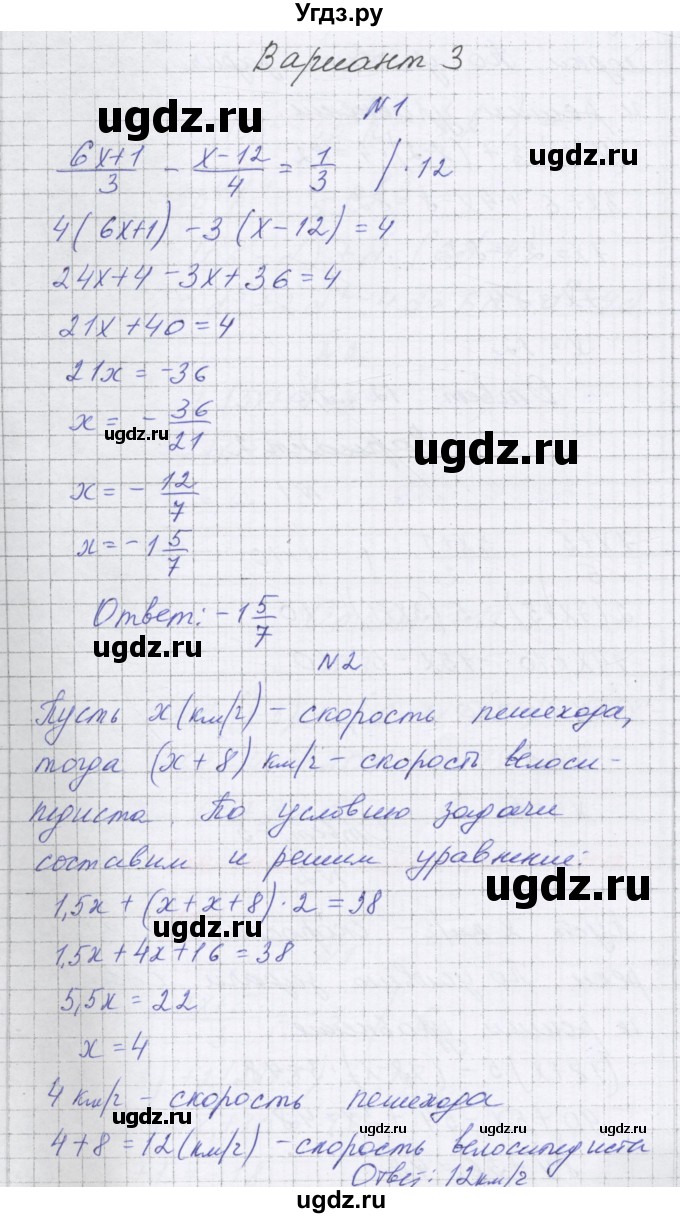 Угдз.ру
Вариант 3
ugdz.ru
N1
(6x+1)/3 - (x-12)/4 = 1/3 / ·12
4(6x+1) - 3(x-12) = 4
24x+4-3x+36=4
21x+40=4
21x=-36
x = - 36/21
ugdz.ru
ugdz.ru
x = - 12/7
x = -1 5/7
ugdz.ru
Ответ: -1 5/7
ugdz.ru
N2
Пусть x(км/ч) - скорость пешехода,
тогда (x+8) км/ч - скорость велоси-
ugdz.ru
педиста. По условию задачи
составим и решим уравнение:
ugdz.ru
1,5x + (x+x+8)·2 = 38
ugdz.ru
1,5x+4x+16=38
5,5x=22
x=4
4 км/ч - скорость пешехода
ugdz.ru
ugdz.ru
ugdz.ru
4+8=12(км/ч) - скорость велосипедиста
Ответ: 12км/ч
ugdz.ru